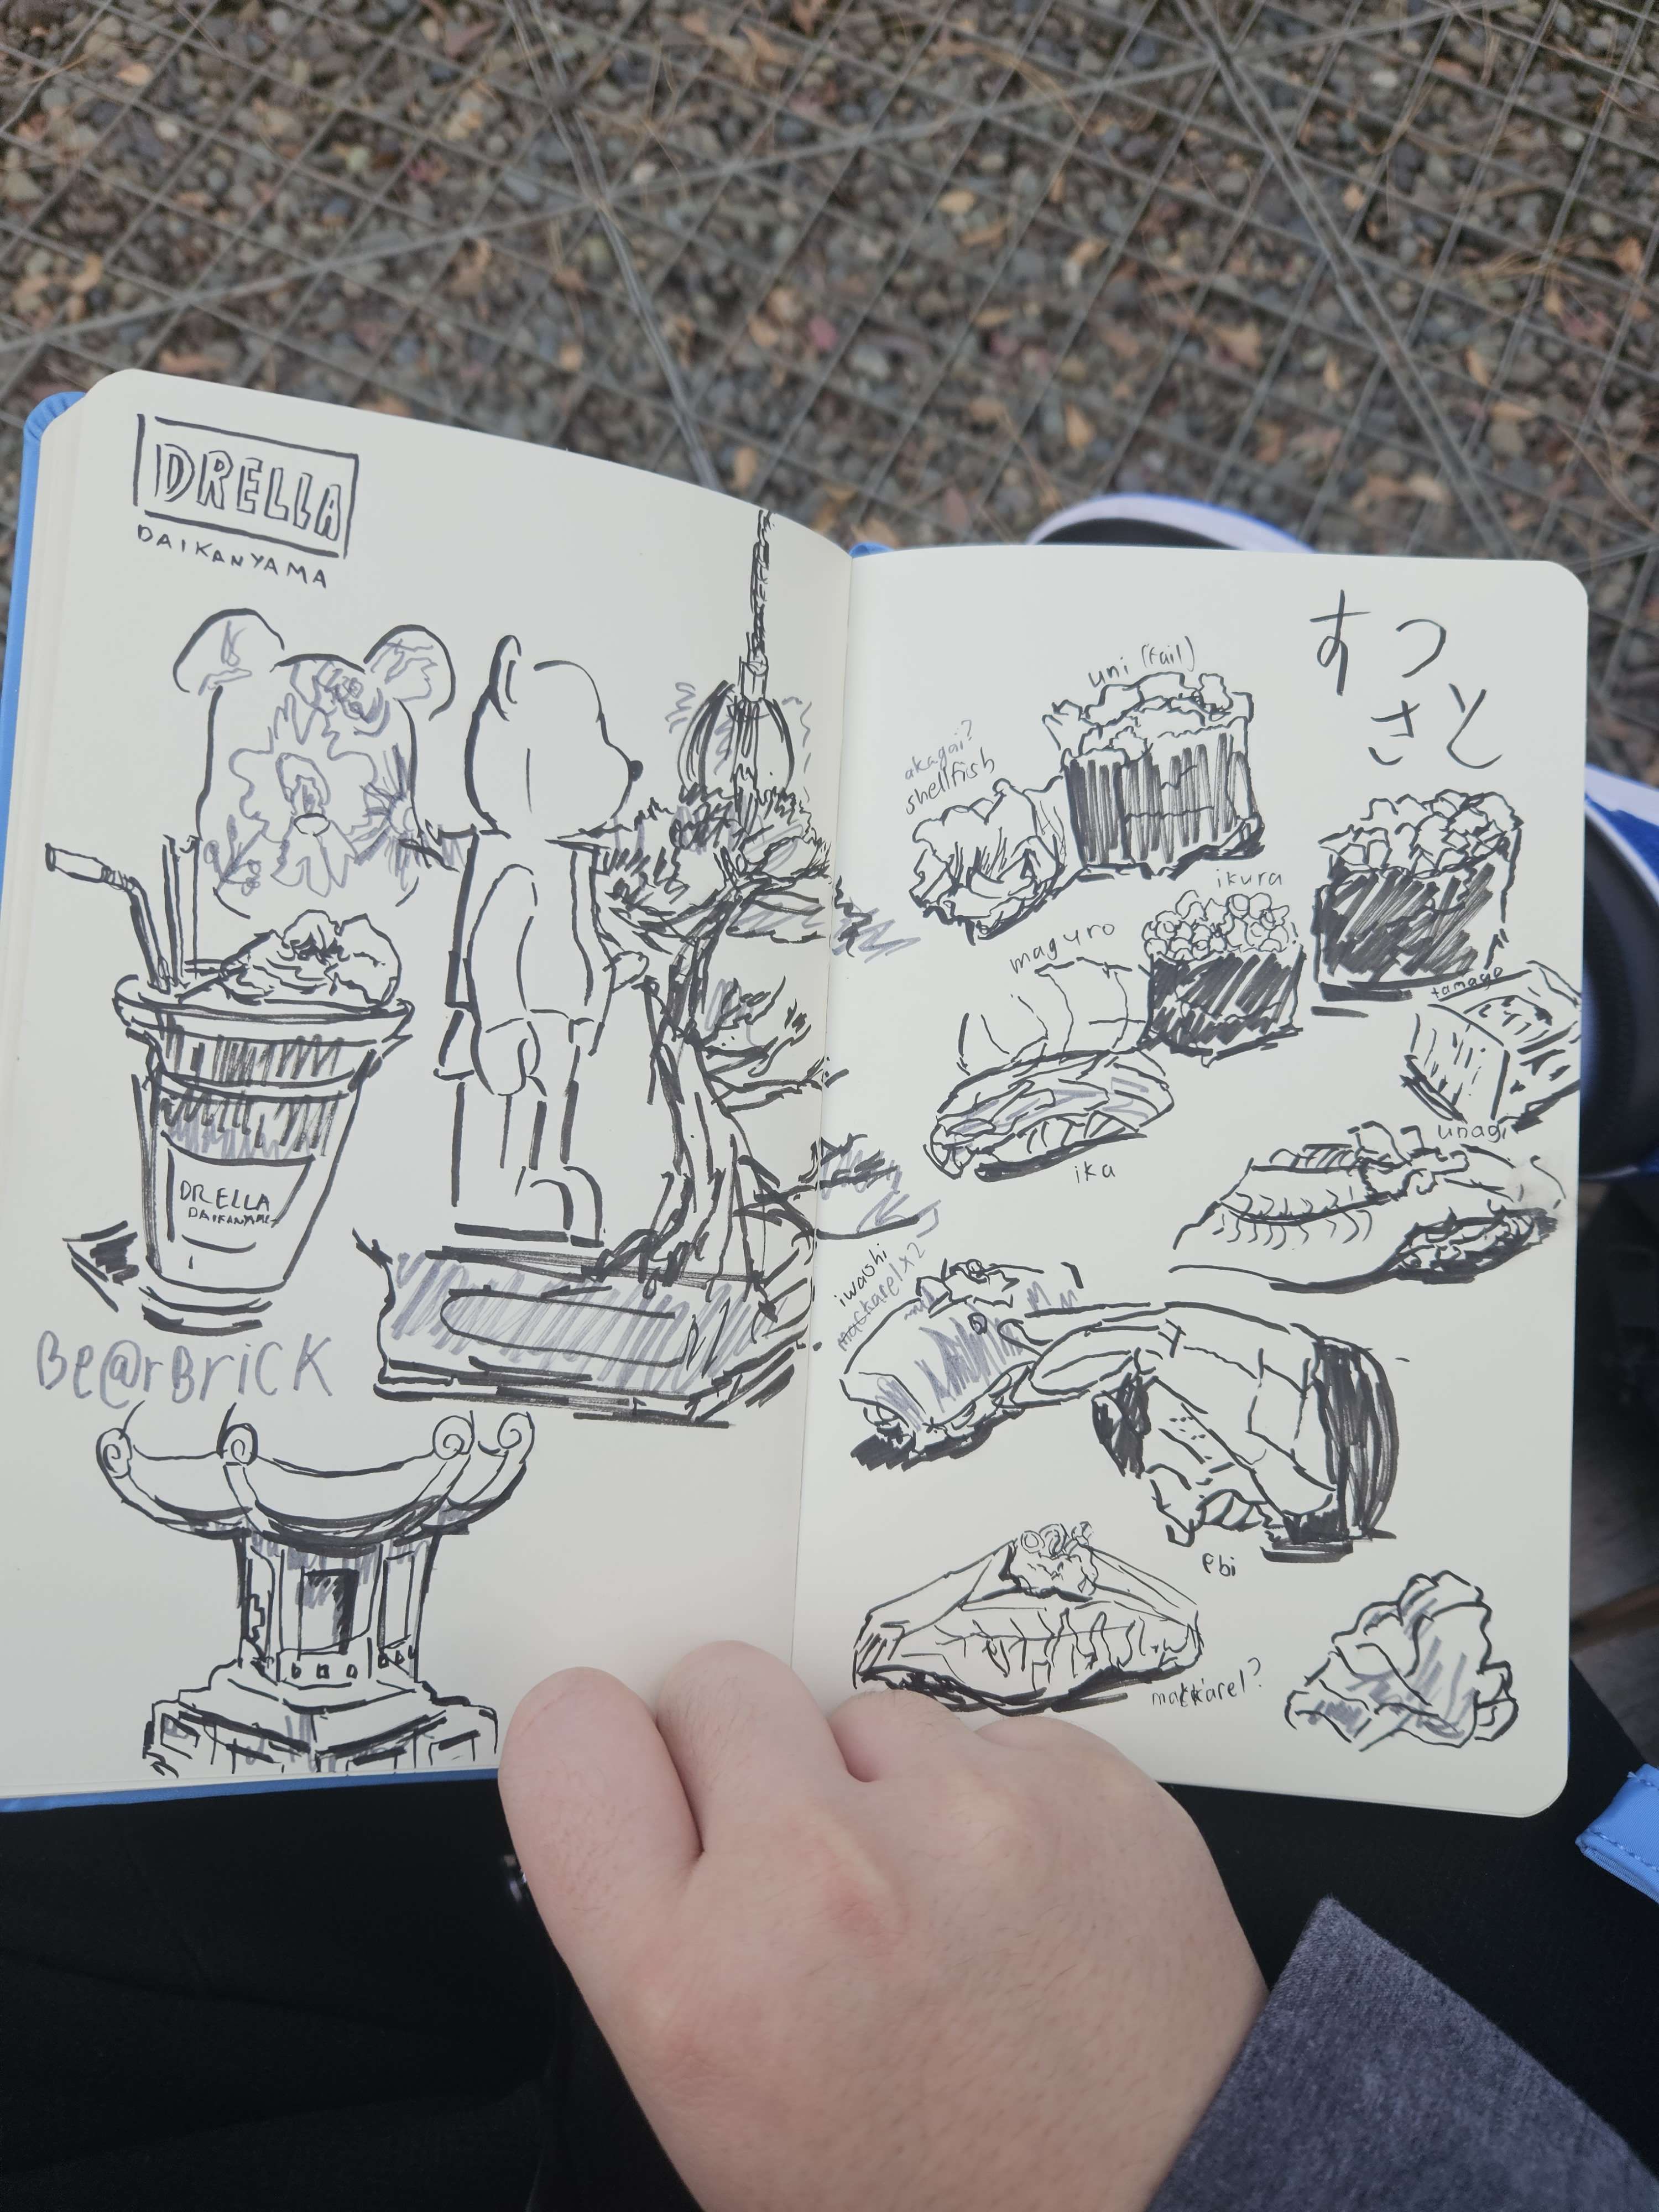 DRELLA
DAIKANYAMA
DRELLA
DAIKANYAMA
Be@rBrick
すつ
さと
uni (fail)
akagai?
shellfish
ikura
maguro
tamago
ika
unagi
iwashi
mackarel x2
ebi
mackarel?